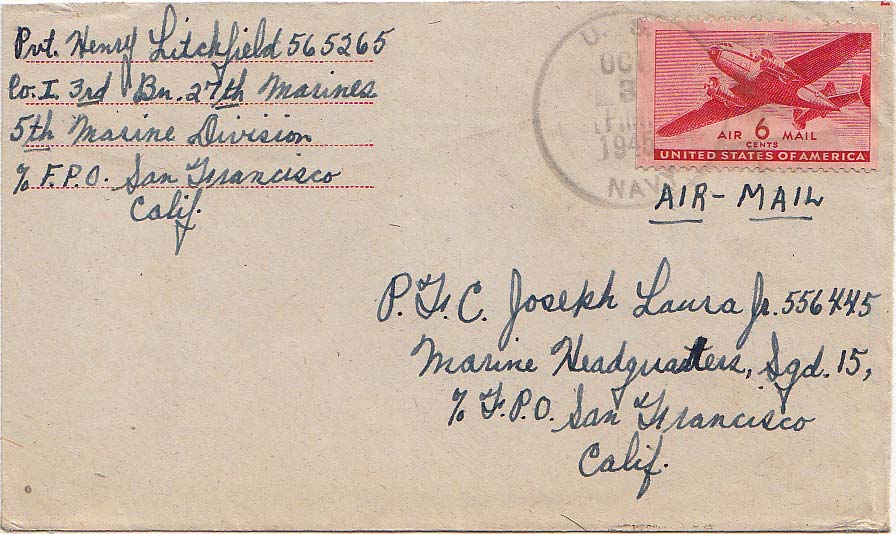 Pvt. Henry Litchfield 565265
Co. I 3rd Bn. 27th Marines
5th Marine Division
% F.P.O. San Francisco
Calif.
U. S.
OCT
3
194
NAVY
AIR 6 MAIL
CENTS
UNITED STATES OF AMERICA
AIR-MAIL
P.F.C. Joseph Laura Jr. 556445
Marine Headquatters, Sqd. 15,
% F.P.O. San Francisco
Calif.